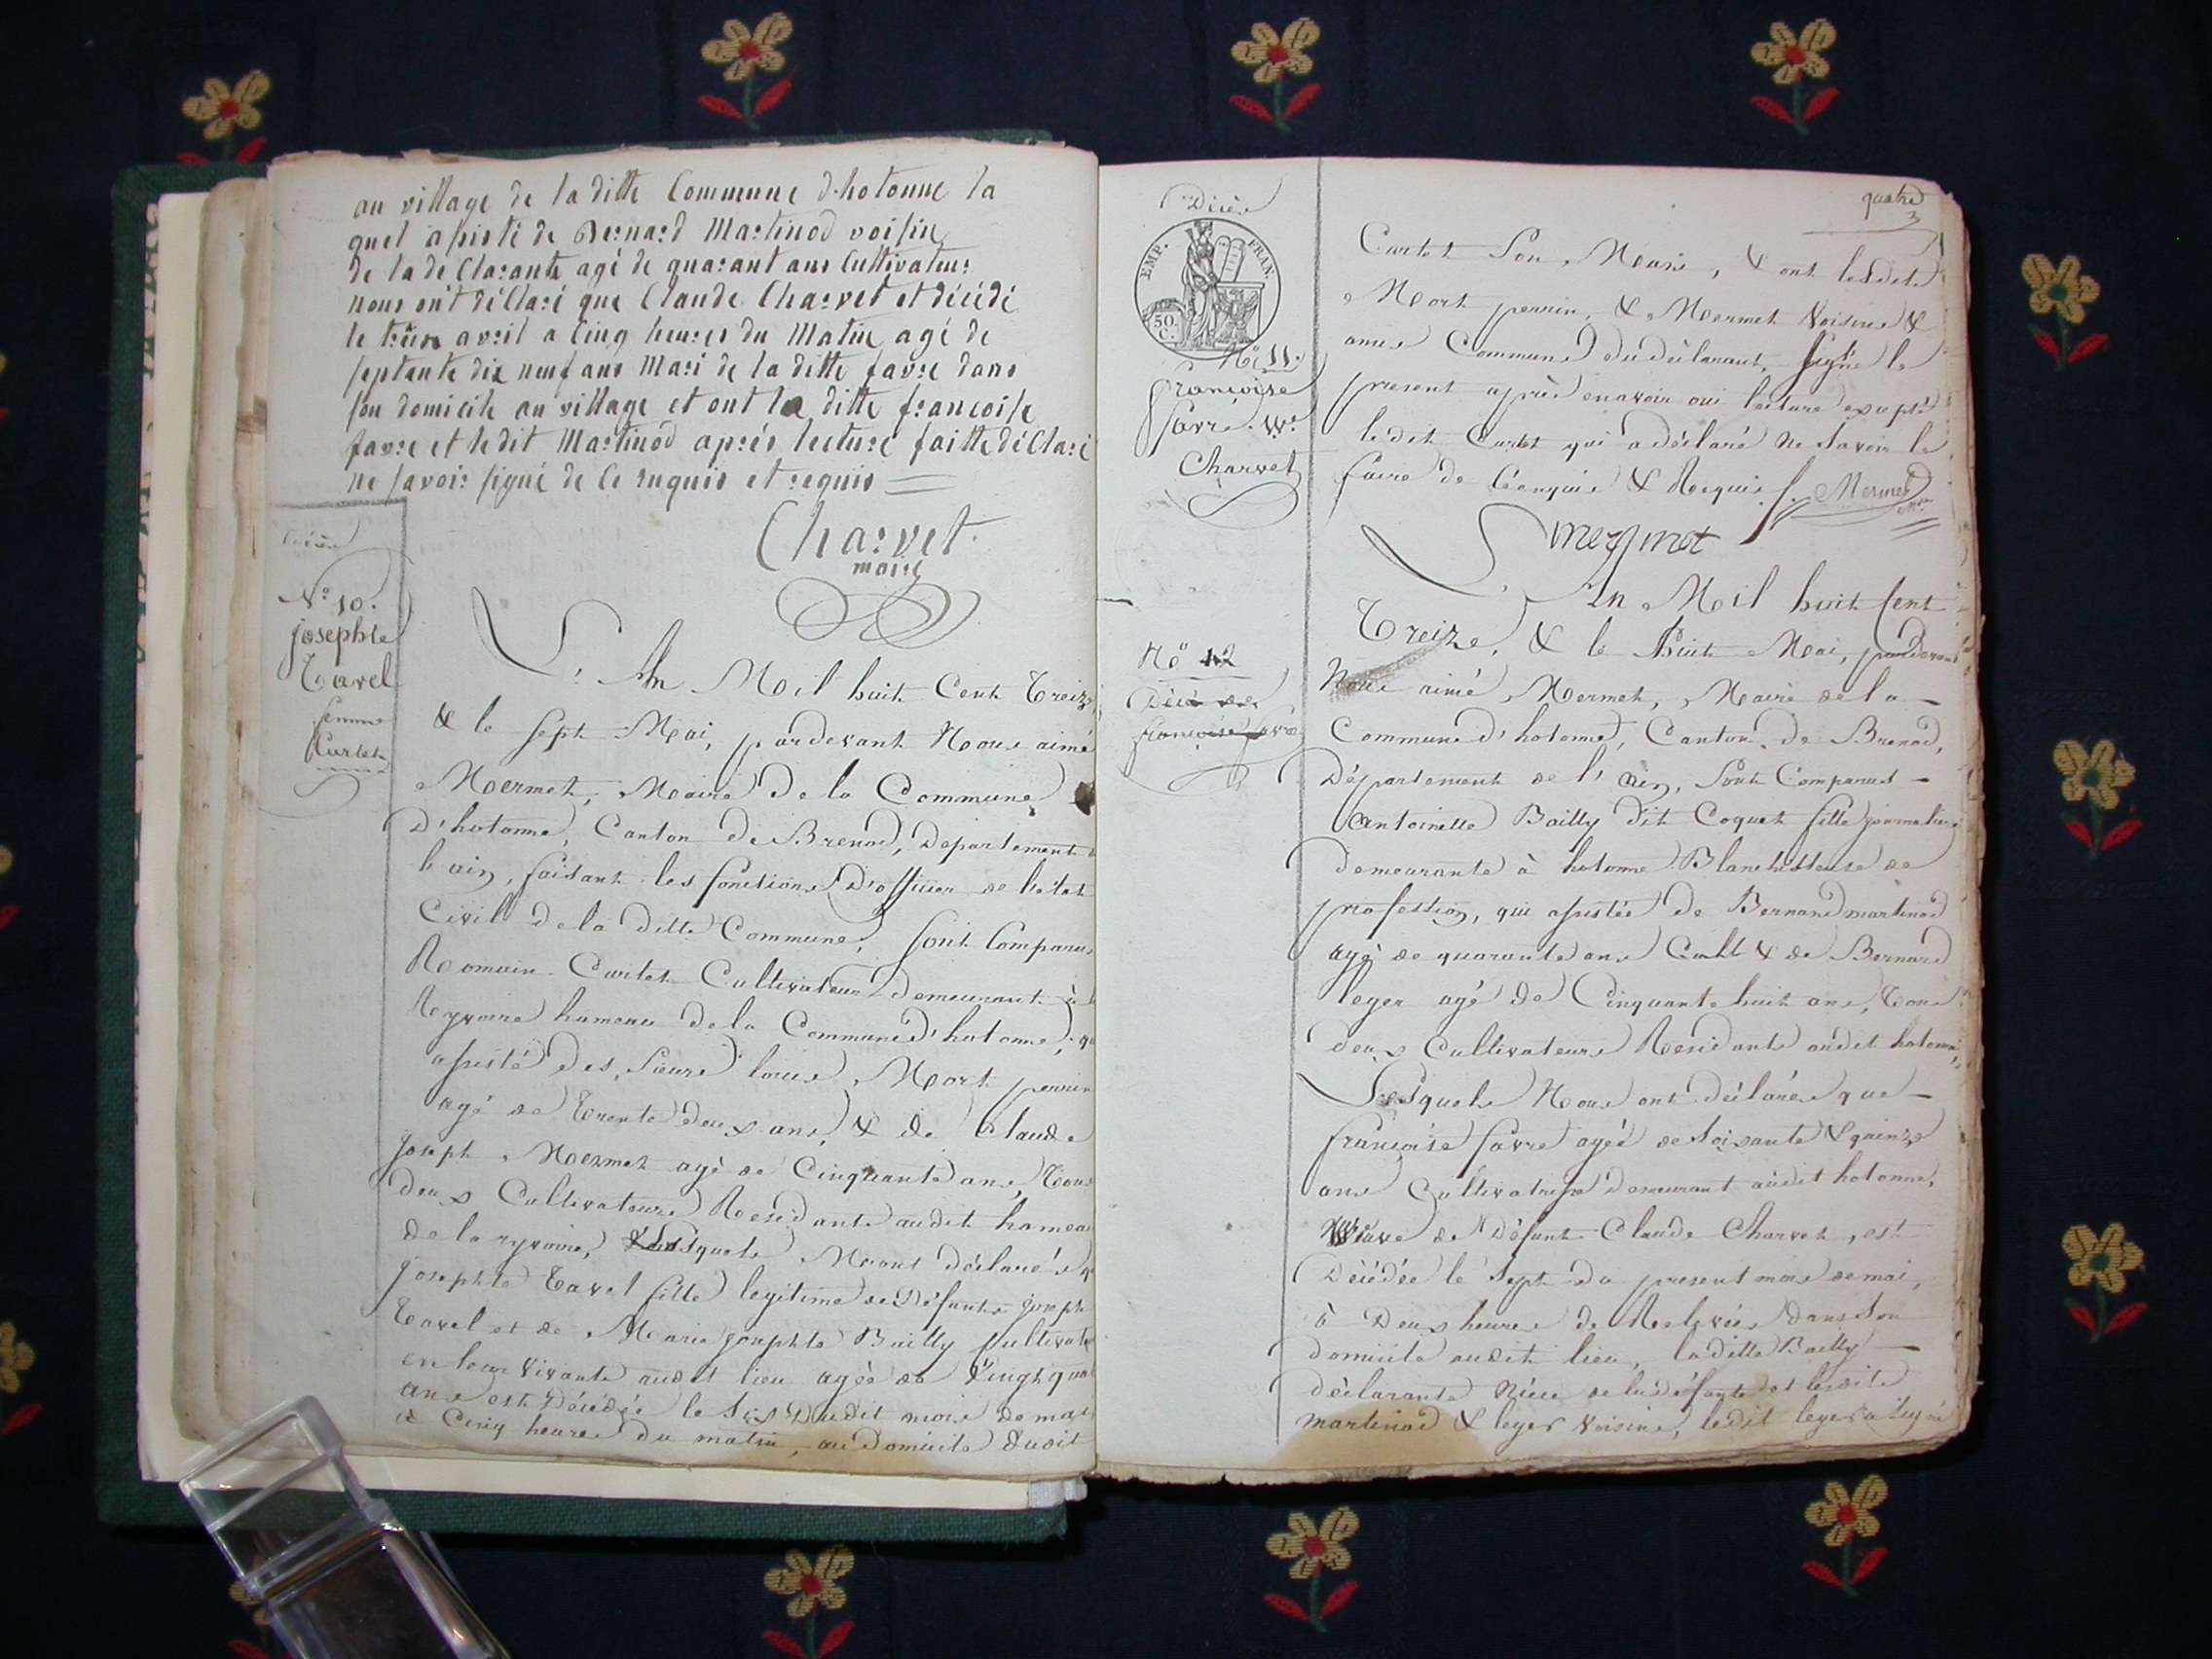 au village de la ditte Commune d'hotonne la
quel apisté de Bernard Martinod voisin
de la de Clarante agé de quarant ans Cultivateur
nous on't dé Claré que Claude Charvet et décédé
le avril a Cinq heures du Matin agé de
septante dix neuf ans Mari de la ditte favre dans
son domicile au village et ont la ditte françoise
favre et le dit Martinod aprés lecture faitte dé Claré
ne savoir signé de Ce enquis et requis
Charvet
maire
Décès
N.º 10.
josephte
Tavel
femme
Curtet
L'An Mil huit Cent Treize
& le sept Mai, pardevant Nous aimé
Mermet, Maire de la Commune
D'hotonne, Canton de Brenod, Departement
l'ain, faisant les fonctions D'officier de l'etat
Civil de la ditte Commune, sont Comparus
Romain Curtet Cultivateur demeurant à
hameau de la Commune d'hotonne, q
assisté des Sieurs louis Mort perrin
agé de Trente Deux ans, & de Claude
joseph Mermet agé de Cinquante ans, Tous
deux Cultivateurs Residants audit hameau
de la ryvoire, Lesquels N'ont déclarés q
josephte Tavel fille legitime de Défunts joseph
Tavel et de Marie josephte Bailly Cultivate
en leur vivants audit lieu agée de Vingt qua
ans est Décédée le Six Dudit mois de mai
à Cinq heures du matin, au Domicile Dudit
quatre
3
Décès
EMP. FRAN.
50
C.
Nº 11.
françoise
favre Vve
Charvet
Curtet Son Mari, & ont lesdits
Mort perrin, & Mermet Voisins &
amis Communs du déclarant, signé le
present après en avoir oui lecture excepté
ledit Curtet qui a déclaré Ne Savoir le
faire de l'enquis & Requis f. Mermet
mermet
Nº 12
Décès de
françoise favre
L'An Mil huit Cent
Treize, & le huit Mai, pardevant
Nous aimé Mermet, Maire de la
Commune d'hotonne, Canton de Brenod,
Département de l'ain, Sont Comparus
Antoinette Bailly dit Coquet fille journalière
demeurante à hotonne Blanchisseuse de
profession, qui assistée de Bernard martinod
agé de quarante ans Cult & de Bernard
leger agé de Cinquante huit ans, Tous
deux Cultivateurs Residants audit hotonne,
Lesquels Nous ont déclarés que
françoise favre agée de Soixante & quinze
ans Cultivatrice demeurant audit hotonne,
Veuve de Défunt Claude Charvet, est
Décédée le Sept du present mois de mai,
à Deux heures de Relevée dans Son
domicile audit lieu, la ditte Bailly
déclarante Niece de la défunte et lesdits
martinod & leger Voisins, ledit leger a signé